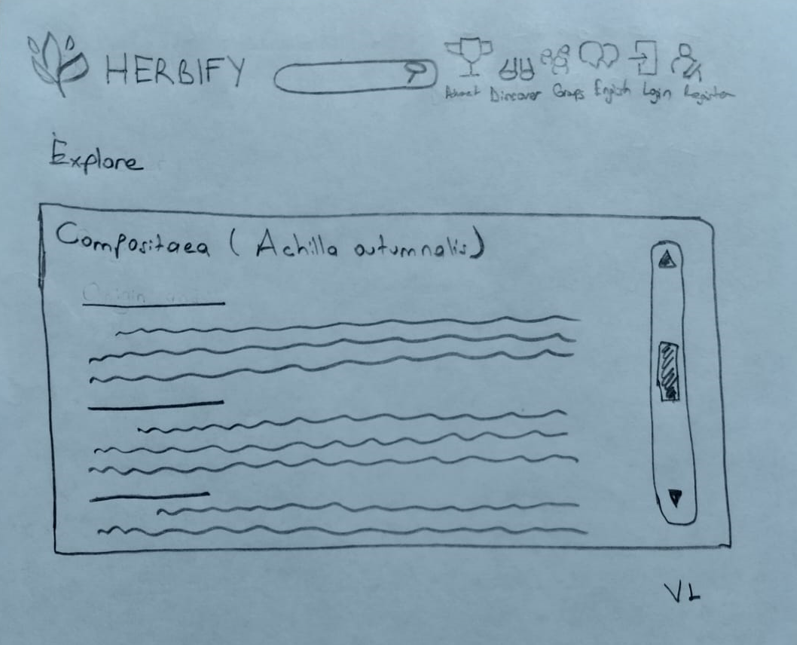 HERBIFY
About Discover Groups English Login Register
Explore
Compositaea (Achilla autumnalis)
Origin
VL